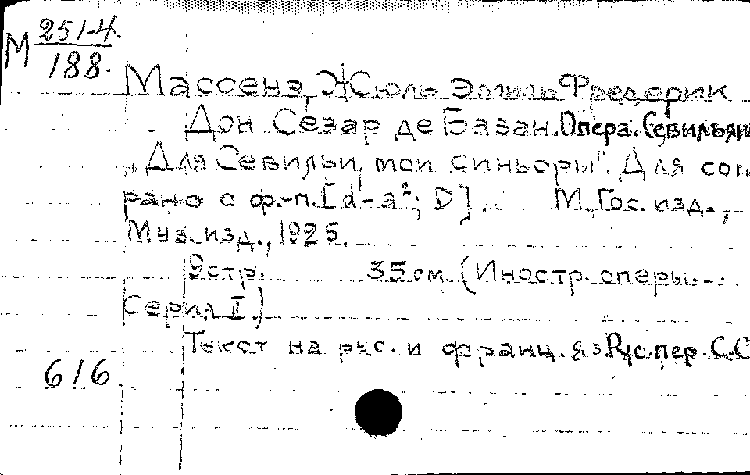 М 251-4.
188.
Массенэ, Жюль Эмиль Фредерик
Дон Сезар де Базан. Опера. Севильян
„Для Севильи, мои синьоры". Для соп
рано с ф.-п. [d¹-a²; D]. М., Гос. изд.,
Муз. изд., 1925.
9 стр. 35 см. (Иностр. оперы.
Серия I.)
Текст на рус. и франц. яз. Рус. пер. С.С
616